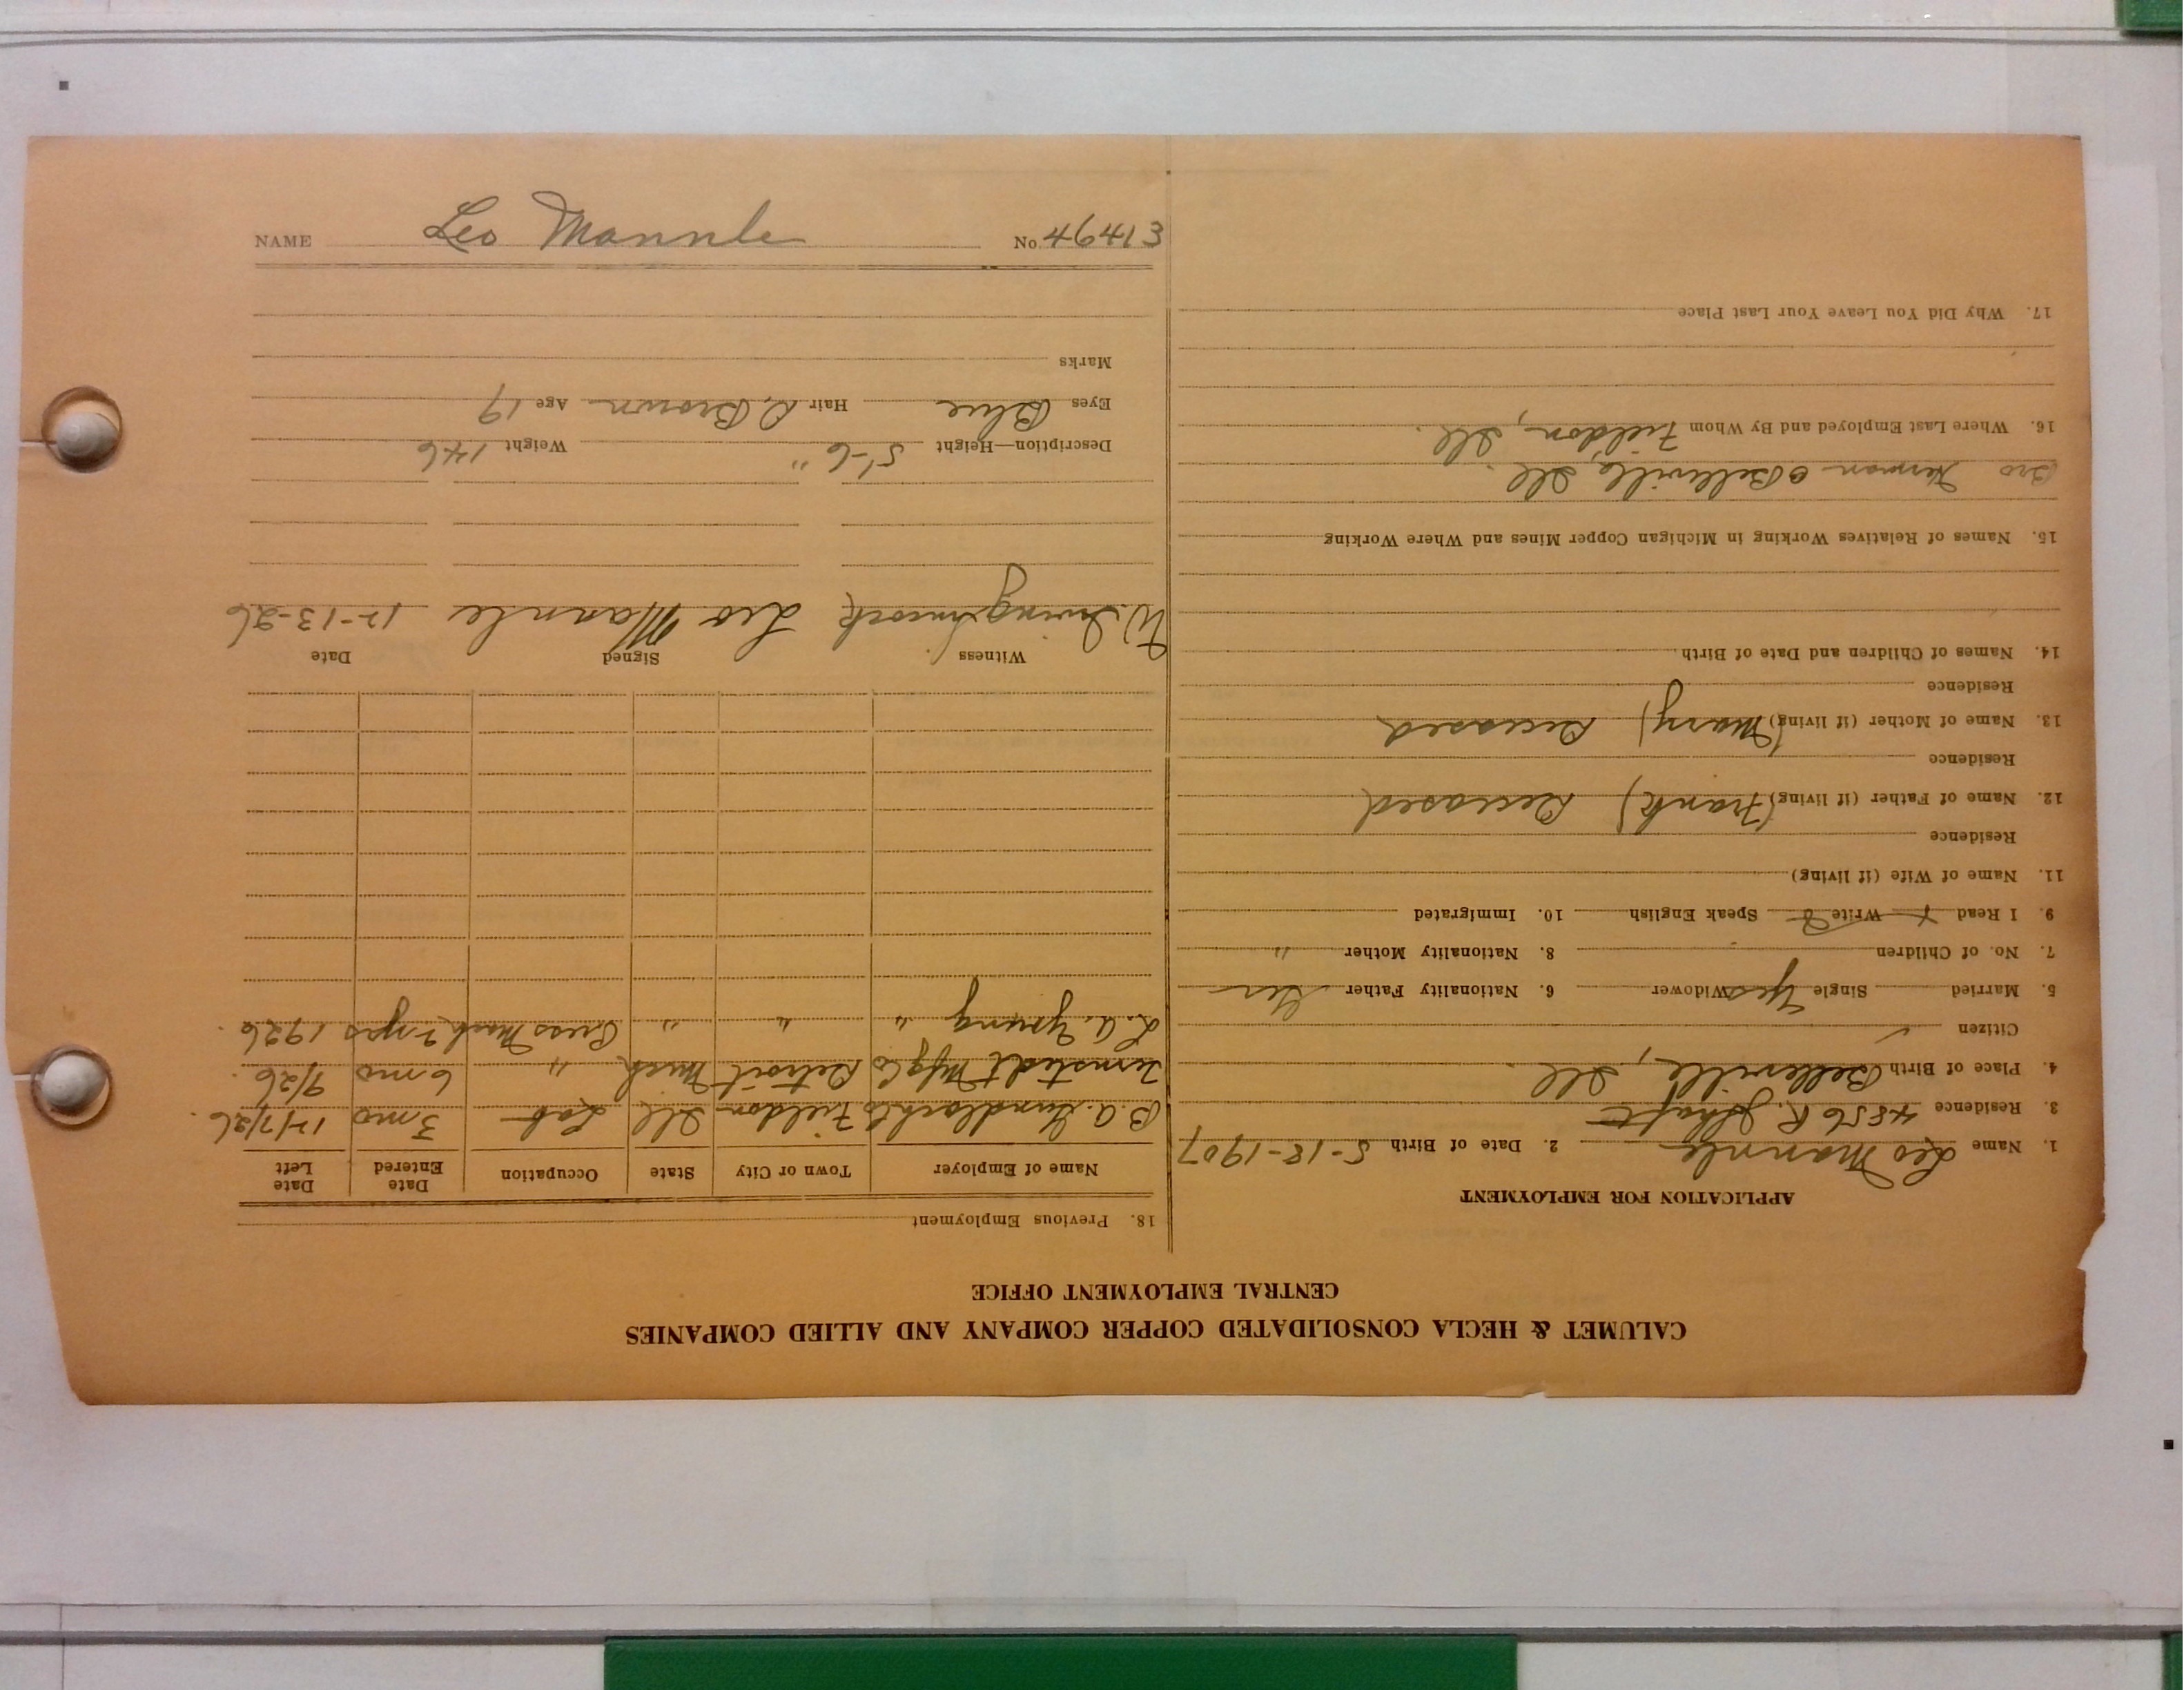 NAME Leo Mannle No 46413
CALUMET & HECLA CONSOLIDATED COPPER COMPANY AND ALLIED COMPANIES
CENTRAL EMPLOYMENT OFFICE
APPLICATION FOR EMPLOYMENT
1. Name Leo Mannle 2. Date of Birth 5-18-1907
3. Residence 4856 R. Jshaft
4. Place of Birth Belleville, Ill.
Citizen ✓
5. Married Single Yes Widower 6. Nationality Father Ger
7. No. of Children 8. Nationality Mother "
9. I Read Write Speak English 10. Immigrated
11. Name of Wife (if living)
Residence
12. Name of Father (if living) (Frank) Deceased
Residence
13. Name of Mother (if living) (Mary) Deceased
Residence
14. Names of Children and Date of Birth
15. Names of Relatives Working in Michigan Copper Mines and Where Working
Bro Herman Belleville, Ill.
16. Where Last Employed and By Whom Fieldon, Ill.
17. Why Did You Leave Your Last Place
18. Previous Employment
Name of Employer Town or City State Occupation Date Entered Date Left
B.A. Gundlach Co Fieldon Ill Lab 3 mo 12/7/26.
Ternstedt Mfg Co Detroit Mich " 6 mo 9/26.
L.A. Young " " " Press Mach 2 yrs 1926.
Witness Signed Date
Leo Mannle 12-13-26
Description—Height 5'-6" Weight 146
Eyes Blue Hair D. Brown Age 19
Marks